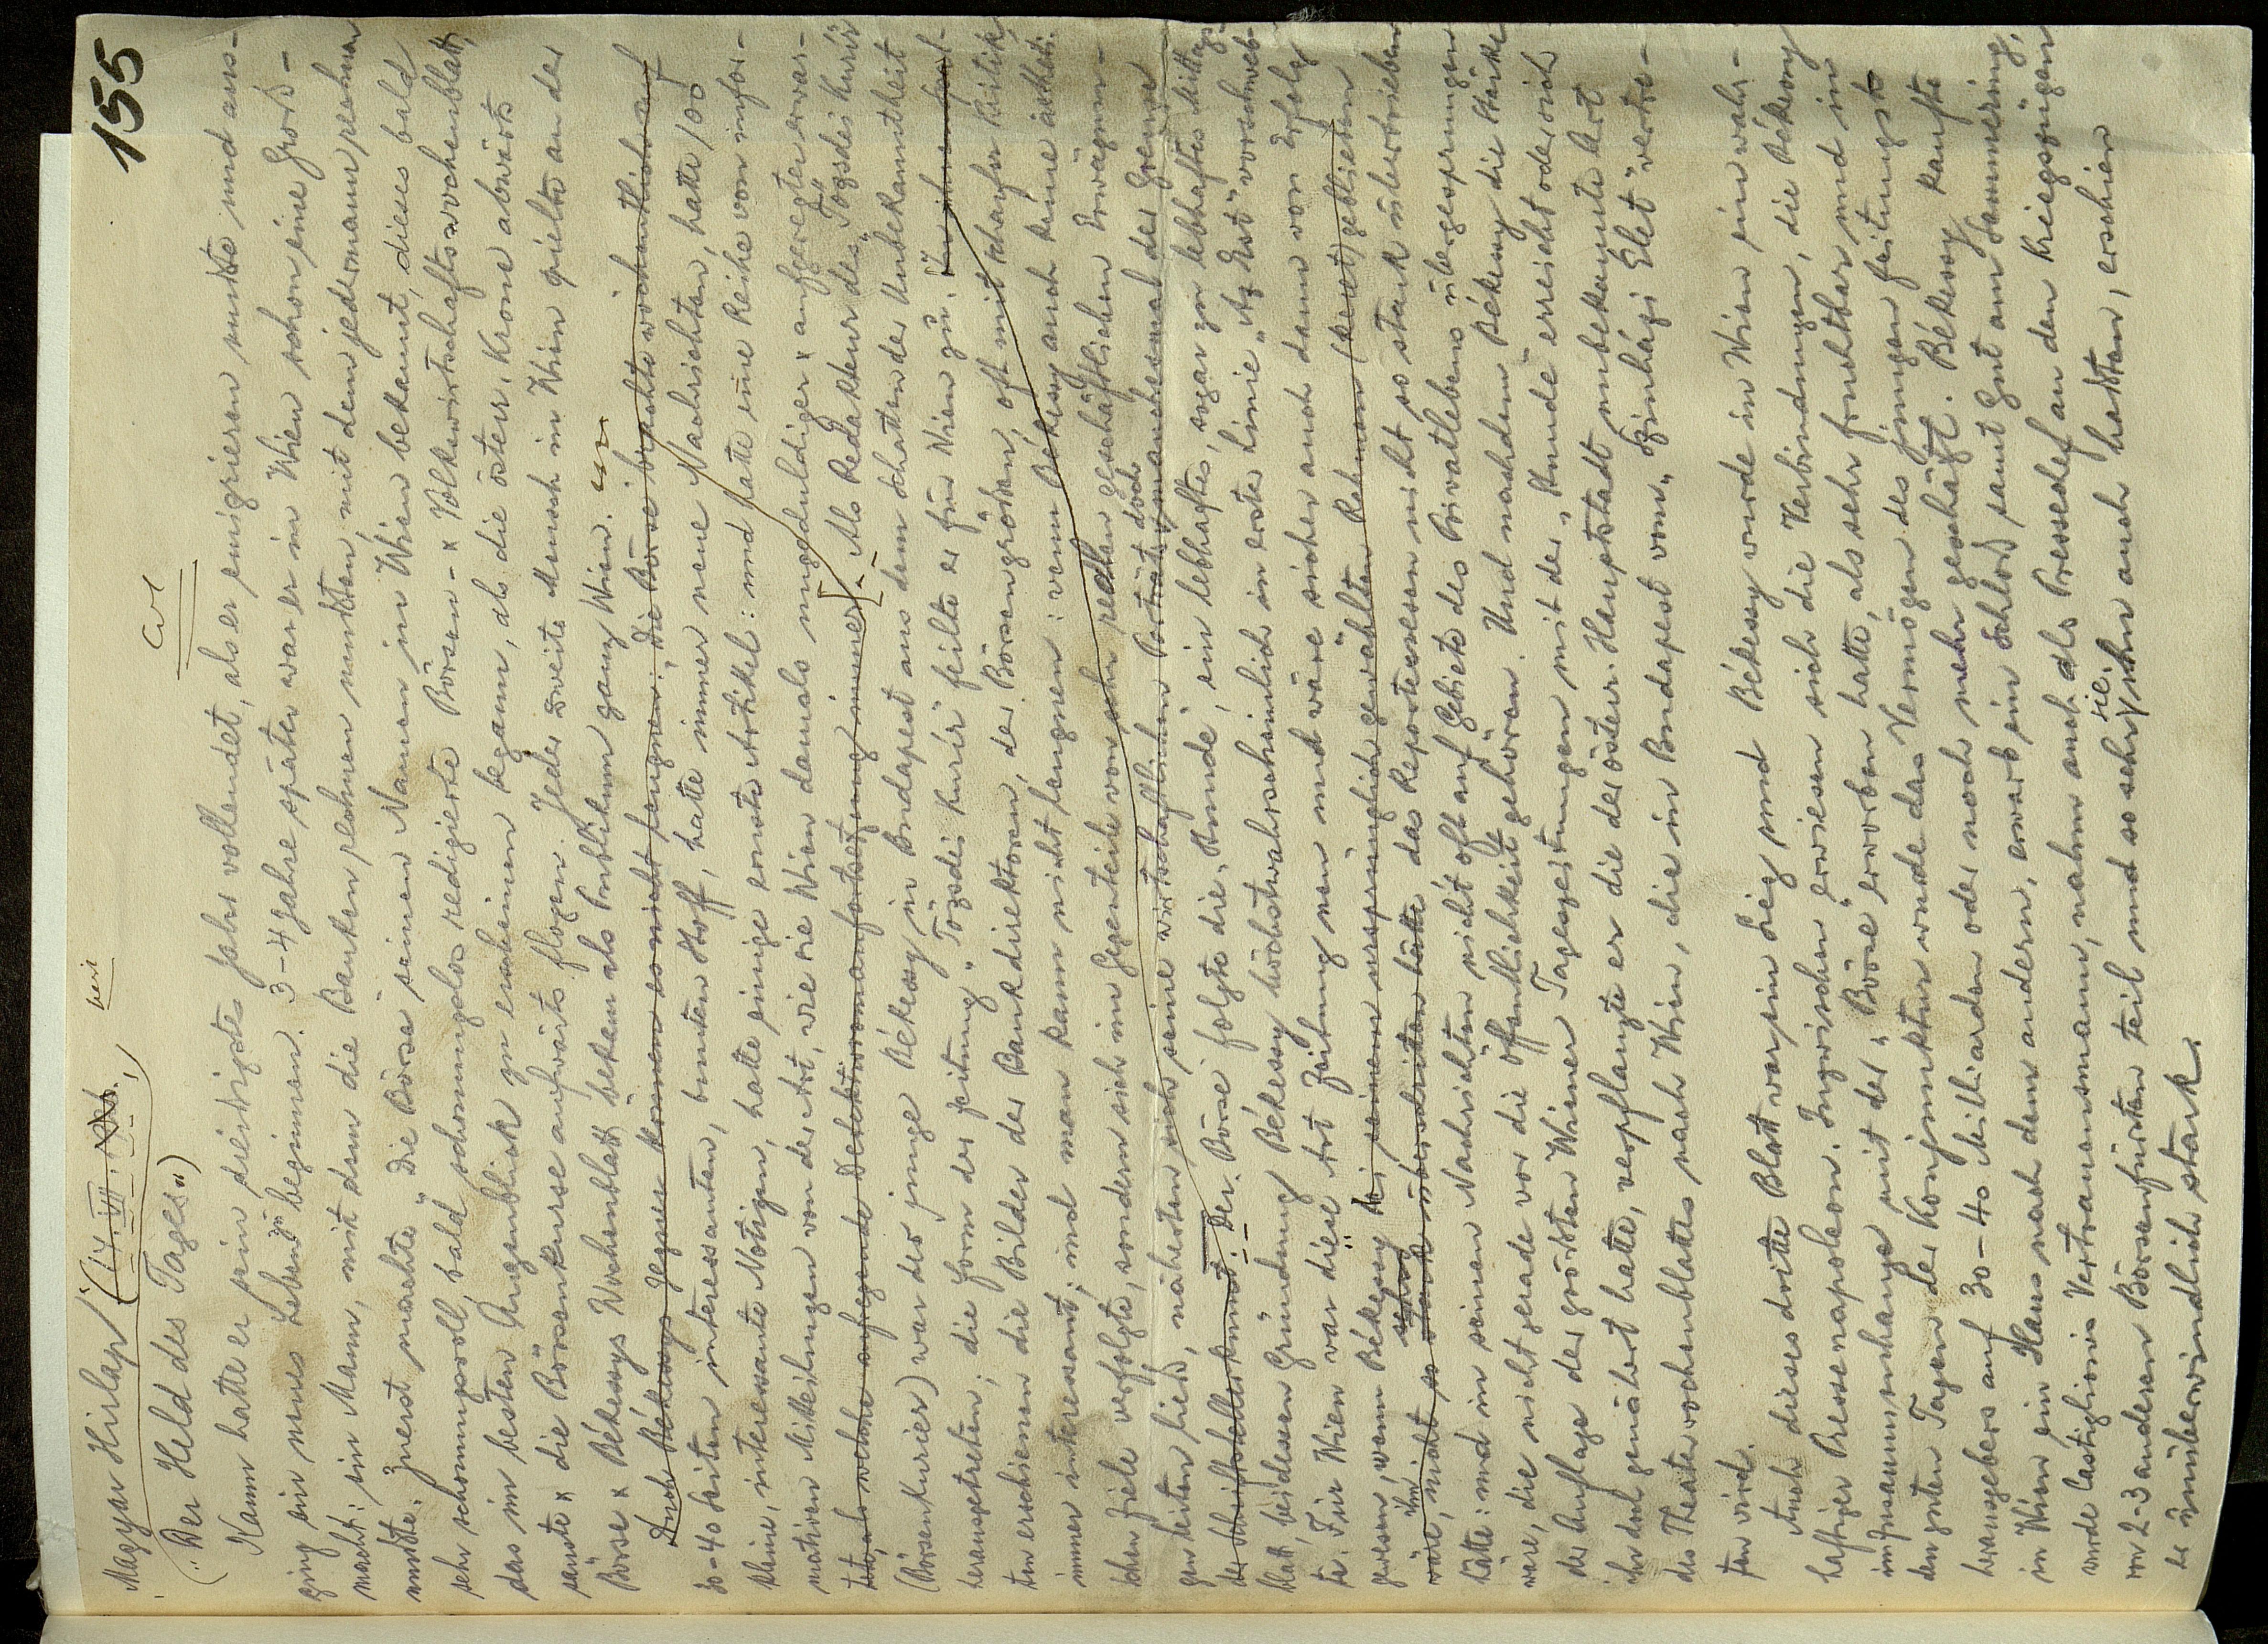 155
Magyar Hirlap (17. VII.
seit
(„Der Held des Tages“)
Kaum hatte er sein dreißigstes Jahr vollendet, als er emigrieren mußte und aus-
ging ein neues Leben zu beginnen. 3-4 Jahre später war er in Wien schon eine Groß-
macht: ein Mann, mit dem die Banken rechnen mußten, mit dem jedermann rechnen
mußte. Zuerst machte „Die Börse“ seinen Namen in Wien bekannt, dieses bald
sehr schonungsvoll, bald schonungslos redigierte Börsen- x Volkswirtschaftswochenblatt,
das im besten Augenblick zu erscheinen begann, als die österr. Krone abwärts
sauste x die Börsenkurse aufwärts flogen. Jeder zweite Mensch in Wien spielte an der
Börse x Békessys Wochenblatt bekam als Publikum ganz Wien.
Auch Békessys Gegner können es nicht leugnen: Die Börse brachte wöchentlich auf
30-40 Seiten interessanten, bunten Stoff, hatte immer neue Nachrichten, hatte 100
kleine, interessante Notizen, hatte einige ernste Artikel: und hatte eine Reihe von infor-
mativen Mitteilungen von der Art, wie sie Wien damals ungeduldiger x aufgeregter erwar-
tete, als welche aufregende Detektivromanfortsetzung immer. Als Redakteur des „Tözsdei Kurir“
(Börsenkurier) war der junge Békessy in Budapest aus dem Schatten der Unbekanntheit
herausgetreten; die Form der Zeitung „Tözsdei Kurir“ feilte er für Wien zu.
ten erschienen die Bilder der Bankdirektoren, der Börsengrößen, oft mit scharfer Kritik,
immer interessant; und man kann nicht leugnen: wenn Békessy auch keine ästheti-
schen Ziele verfolgte, sondern sich im Gegenteile von sehr realen geschäftlichen Erwägun-
gen leiten ließ, näherten sich seine wirtschaftlichen Porträts doch manchesmal der Grenze
der Schriftstellerkunst. Der „Börse“ folgte die „Stunde“, ein lebhaftes, sogar zu lebhaftes Mittags-
blatt, bei dessen Gründung Békessy höchstwahrscheinlich in erster Linie „Az Est“ vorschweb-
te. Für Wien war diese Art Zeitung neu und wäre sicher auch dann von Erfolg
gewesen, wenn Békessy bei seinem ursprünglich gewählten Rahmen (keret) geblieben
wäre, nicht so stark überschritten hätte das Reporterwesen nicht so stark übertrieben
hätte: und in seinen Nachrichten nicht oft auf Gebiete des Privatlebens übergesprungen
wäre, die nicht gerade vor die Öffentlichkeit gehören. Und nachdem Békessy die Stärke
der Auflage der größten Wiener Tageszeitungen mit der „Stunde“ erreicht oder sich
ihr doch genähert hatte, verpflanzte er die der österr. Hauptstadt unbekannte Art
des Theaterwochenblattes nach Wien, die in Budapest vom „Szinházi Élet“ vertre-
ten wird.
Auch dieses dritte Blatt war ein Sieg und Békessy wurde in Wien ein wahr-
haftiger Pressenapoleon. Inzwischen erwiesen sich die Verbindungen, die Békessy
im Zusammenhange mit der „Börse“ erworben hatte, als sehr fruchtbar und in
den guten Tagen der Konjunktur wurde das Vermögen des jungen Zeitungs-
herausgebers auf 30-40 Milliarden oder noch mehr geschätzt. Békessy kaufte
in Wien ein Haus nach dem andern, erwarb ein Schloß samt Gut am Semmering,
wurde Castiglionis Vertrauensmann, nahm auch als Pressechef an den Kriegszügen
von 2-3 anderen Börsenfürsten teil und so sehr sie ihn auch haßten, erschien
er unüberwindlich stark.